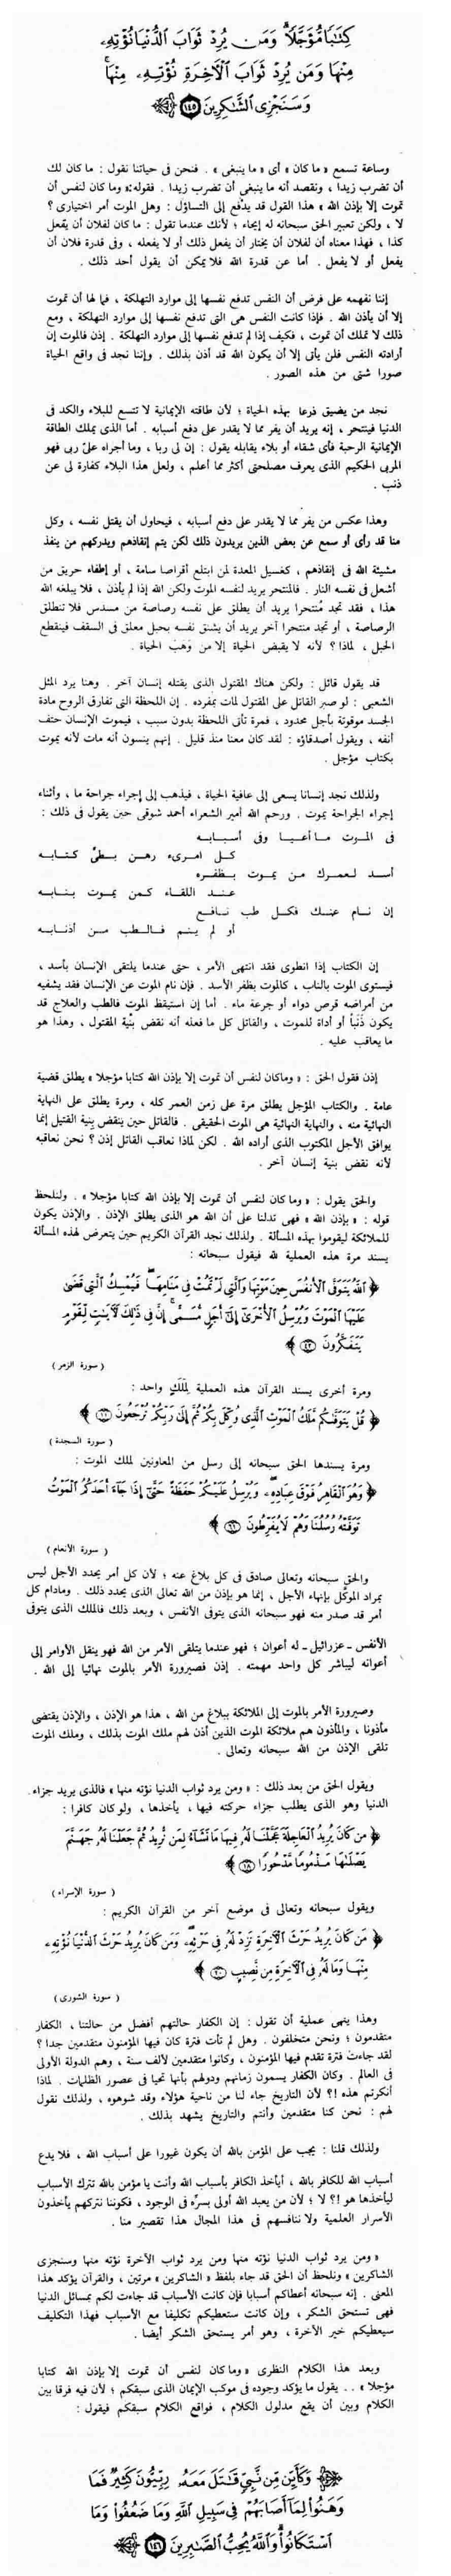 كِتَابًا مُّؤَجَّلًا وَمَن يُرِدْ ثَوَابَ الدُّنْيَا نُؤْتِهِ
مِنْهَا وَمَن يُرِدْ ثَوَابَ الْآخِرَةِ نُؤْتِهِ مِنْهَا
وَسَنَجْزِي الشَّاكِرِينَ ١٤٥
وساعة تسمع « ما كان » أى « ما ينبغى » . فنحن فى حياتنا نقول : ما كان لك
أن تضرب زيدا ، ونقصد أنه ما ينبغى أن تضرب زيدا . فقوله : « وما كان لنفس أن
تموت إلا بإذن الله » هذا القول قد يدفع إلى التساؤل : وهل الموت أمر اختيارى ؟
لا ، ولكن تعبير الحق سبحانه له إيحاء ؛ لأنك عندما تقول : ما كان لفلان أن يفعل
كذا ، فهذا معناه أن لفلان أن يختار أن يفعل ذلك أو لا يفعله ، وفى قدرة فلان أن
يفعل أو لا يفعل . أما عن قدرة الله فلا يمكن أن يقول أحد ذلك .
إننا نفهمه على فرض أن النفس تدفع نفسها إلى موارد التهلكة ، فما لها أن تموت
إلا أن يأذن الله . فإذا كانت النفس هى التى تدفع نفسها إلى موارد التهلكة ، ومع
ذلك لا تملك أن تموت ، فكيف إذا لم تدفع نفسها إلى موارد التهلكة . إذن فالموت إن
أرادته النفس فلن يأتى إلا أن يكون الله قد أذن بذلك . وإننا نجد فى واقع الحياة
صورا شتى من هذه الصور .
نجد من يضيق ذرعا بهذه الحياة ؛ لأن طاقته الإيمانية لا تتسع للبلاء والكد فى
الدنيا فينتحر ، إنه يريد أن يفر مما لا يقدر على دفع أسبابه . أما الذى يملك الطاقة
الإيمانية الرحبة فأى شقاء أو بلاء يقابله يقول : إن لى ربا ، وما أجراه علىّ ربى فهو
المربى الحكيم الذى يعرف مصلحتى أكثر مما أعلم ، ولعل هذا البلاء كفارة لى عن
ذنب .
وهذا عكس من يفر مما لا يقدر على دفع أسبابه ، فيحاول أن يقتل نفسه ، وكل
منا قد رأى أو سمع عن بعض الذين يريدون ذلك لكن يتم إنقاذهم ويدركهم من ينفذ
مشيئة الله فى إنقاذهم ، كغسيل المعدة لمن ابتلع أقراصا سامة ، أو إطفاء حريق من
أشعل فى نفسه النار . فالمنتحر يريد لنفسه الموت ولكن الله إذا لم يأذن ، فلا يبلغه الله
هذا ، فقد تجد مُنتحرا يريد أن يطلق على نفسه رصاصة من مسدس فلا تنطلق
الرصاصة ، أو تجد منتحرا آخر يريد أن يشنق نفسه بحبل معلق فى السقف فينقطع
الحبل ، لماذا ؟ لأنه لا يقبض الحياة إلا من وَهَبَ الحياة .
قد يقول قائل : ولكن هناك المقتول الذى يقتله إنسان آخر . وهنا يرد المثل
الشعبى : لو صبر القاتل على المقتول لمات بمفرده . إن اللحظة التى تفارق الروح مادة
الجسد موقوتة بأجل محدود ، فمرة تأتى اللحظة بدون سبب ، فيموت الإنسان حتف
أنفه ، ويقول أصدقاؤه : لقد كان معنا منذ قليل . إنهم ينسون أنه مات لأنه يموت
بكتاب مؤجل .
ولذلك نجد إنسانا يسعى إلى عافية الحياة ، فيذهب إلى إجراء جراحة ما ، وأثناء
إجراء الجراحة يموت . ورحم الله أمير الشعراء أحمد شوقى حين يقول فى ذلك :
فى الموت ما أعيا وفى أسبابه
كل امرىء رهن بطىّ كتابه
أسد لعمرك من يموت بظفره
عند اللقاء كمن يموت بنابه
إن نام عنك فكل طب نافع
أو لم ينم فالطب من أذنابه
إن الكتاب إذا انطوى فقد انتهى الأمر ، حتى عندما يلتقى الإنسان بأسد ،
فيستوى الموت بالناب ، كالموت بظفر الأسد . فإن نام الموت عن الإنسان فقد يشفيه
من أمراضه قرص دواء أو جرعة ماء . أما إن استيقظ الموت فالطب والعلاج قد
يكون ذَنَباً أو أداة للموت ، والقاتل كل ما فعله أنه نقض بنية المقتول ، وهذا هو
ما يعاقب عليه .
إذن فقول الحق : « وما كان لنفس أن تموت إلا بإذن الله كتابا مؤجلا » يطلق قضية
عامة . والكتاب المؤجل يطلق مرة على زمن العمر كله ، ومرة يطلق على النهاية
النهائية منه ، والنهاية النهائية هى الموت الحقيقى . فالقاتل حين ينقض بنية القتيل إنما
يوافق الأجل المكتوب الذى أراده الله . لكن لماذا نعاقب القاتل إذن ؟ نحن نعاقبه
لأنه نقض بنية إنسان آخر .
والحق يقول : « وما كان لنفس أن تموت إلا بإذن الله كتابا مؤجلا » . ولنلحظ
قوله : « بإذن الله » فهى تدلنا على أن الله هو الذى يطلق الإذن . والإذن يكون
للملائكة ليقوموا بهذه المسألة . ولذلك نجد القرآن الكريم حين يتعرض لهذه المسألة
يسند مرة هذه العملية لله فيقول سبحانه :
﴿ اللَّهُ يَتَوَفَّى الْأَنفُسَ حِينَ مَوْتِهَا وَالَّتِي لَمْ تَمُتْ فِي مَنَامِهَا فَيُمْسِكُ الَّتِي قَضَىٰ
عَلَيْهَا الْمَوْتَ وَيُرْسِلُ الْأُخْرَىٰ إِلَىٰ أَجَلٍ مُّسَمًّى إِنَّ فِي ذَٰلِكَ لَآيَاتٍ لِّقَوْمٍ
يَتَفَكَّرُونَ ٤٢ ﴾
( سورة الزمر )
ومرة أخرى يسند القرآن هذه العملية لِمَلَكٍ واحد :
﴿ قُلْ يَتَوَفَّاكُم مَّلَكُ الْمَوْتِ الَّذِي وُكِّلَ بِكُمْ ثُمَّ إِلَىٰ رَبِّكُمْ تُرْجَعُونَ ١١ ﴾
( سورة السجدة )
ومرة يسندها الحق سبحانه إلى رسل من المعاونين لملك الموت :
﴿ وَهُوَ الْقَاهِرُ فَوْقَ عِبَادِهِ وَيُرْسِلُ عَلَيْكُمْ حَفَظَةً حَتَّىٰ إِذَا جَاءَ أَحَدَكُمُ الْمَوْتُ
تَوَفَّتْهُ رُسُلُنَا وَهُمْ لَا يُفَرِّطُونَ ٦١ ﴾
( سورة الأنعام )
والحق سبحانه وتعالى صادق فى كل بلاغ عنه ؛ لأن كل أمر يحدد الأجل ليس
بمراد الموكَّل بإنهاء الأجل ، إنما هو بإذن من الله تعالى الذى يحدد ذلك . ومادام كل
أمر قد صدر منه فهو سبحانه الذى يتوفى الأنفس ، وبعد ذلك فالملك الذى يتوفى
الأنفس - عزرائيل - له أعوان ؛ فهو عندما يتلقى الأمر من الله فهو ينقل الأوامر إلى
أعوانه ليباشر كل واحد مهمته . إذن فصيرورة الأمر بالموت نهائيا إلى الله .
وصيرورة الأمر بالموت إلى الملائكة ببلاغ من الله ، هذا هو الإذن ، والإذن يقتضى
مأذونا ، والمأذون هم ملائكة الموت الذين أذن لهم ملك الموت بذلك ، وملك الموت
تلقى الإذن من الله سبحانه وتعالى .
ويقول الحق من بعد ذلك : « ومن يرد ثواب الدنيا نؤته منها » فالذى يريد جزاء
الدنيا وهو الذى يطلب جزاء حركته فيها ، يأخذها ، ولو كان كافرا :
﴿ مَّن كَانَ يُرِيدُ الْعَاجِلَةَ عَجَّلْنَا لَهُ فِيهَا مَا نَشَاءُ لِمَن نُّرِيدُ ثُمَّ جَعَلْنَا لَهُ جَهَنَّمَ
يَصْلَاهَا مَذْمُومًا مَّدْحُورًا ١٨ ﴾
( سورة الإسراء )
ويقول سبحانه وتعالى فى موضع آخر من القرآن الكريم :
﴿ مَن كَانَ يُرِيدُ حَرْثَ الْآخِرَةِ نَزِدْ لَهُ فِي حَرْثِهِ وَمَن كَانَ يُرِيدُ حَرْثَ الدُّنْيَا نُؤْتِهِ
مِنْهَا وَمَا لَهُ فِي الْآخِرَةِ مِن نَّصِيبٍ ٢٠ ﴾
( سورة الشورى )
وهذا ينهى عملية أن تقول : إن الكفار حالتهم أفضل من حالتنا ، الكفار
متقدمون ؛ ونحن متخلفون . وهل لم تأت فترة كان فيها المؤمنون متقدمين جدا ؟
لقد جاءت فترة تقدم فيها المؤمنون ، وكانوا متقدمين لألف سنة ، وهم الدولة الأولى
فى العالم . وكان الكفار يسمون زمانهم ودولهم بأنها تحيا فى عصور الظلمات . لماذا
أنكرتم هذه ؟! لأن التاريخ جاء لنا من ناحية هؤلاء وقد شوهوه ، ولذلك نقول
لهم : نحن كنا متقدمين وأنتم والتاريخ يشهد بذلك .
ولذلك قلنا : يجب على المؤمن بالله أن يكون غيورا على أسباب الله ، فلا يدع
أسباب الله للكافر بالله ، أيأخذ الكافر بأسباب الله وأنت يا مؤمن بالله تترك الأسباب
ليأخذها هو ؟! لا ؛ لأن من يعبد الله أولى بسرِّه فى الوجود ، فكوننا نتركهم يأخذون
الأسرار العلمية ولا ننافسهم فى هذا المجال هذا تقصير منا .
« ومن يرد ثواب الدنيا نؤته منها ومن يرد ثواب الآخرة نؤته منها وسنجزى
الشاكرين » ونلحظ أن الحق قد جاء بلفظ « الشاكرين » مرتين ، والقرآن يؤكد هذا
المعنى . إنه سبحانه أعطاكم أسبابا فإن كانت الأسباب قد جاءت لكم بمسائل الدنيا
فهى تستحق الشكر ، وإن كانت ستعطيكم تكليفا مع الأسباب فهذا التكليف
سيعطيكم خير الآخرة ، وهو أمر يستحق الشكر أيضا .
وبعد هذا الكلام النظرى « وما كان لنفس أن تموت إلا بإذن الله كتابا
مؤجلا » .. يقول ما يؤكد وجوده فى موكب الإيمان الذى سبقكم ؛ لأن فيه فرقا بين
الكلام وبين أن يقع مدلول الكلام ، فواقع الكلام سبقكم فيقول :
وَكَأَيِّن مِّن نَّبِيٍّ قَاتَلَ مَعَهُ رِبِّيُّونَ كَثِيرٌ فَمَا
وَهَنُوا لِمَا أَصَابَهُمْ فِي سَبِيلِ اللَّهِ وَمَا ضَعُفُوا وَمَا
اسْتَكَانُوا وَاللَّهُ يُحِبُّ الصَّابِرِينَ ١٤٦